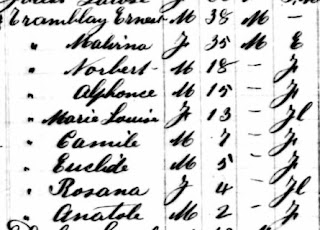 Tramblay Ernest M 38 M -
" Malvina F 35 M E
" Norbert M 18 - F
" Alphonce M 15 - F
" Marie Louise F 13 - Fl
" Camile M 7 - F
" Euclide M 5 - F
" Rosana F 4 - Fl
" Anatole M 2 - F